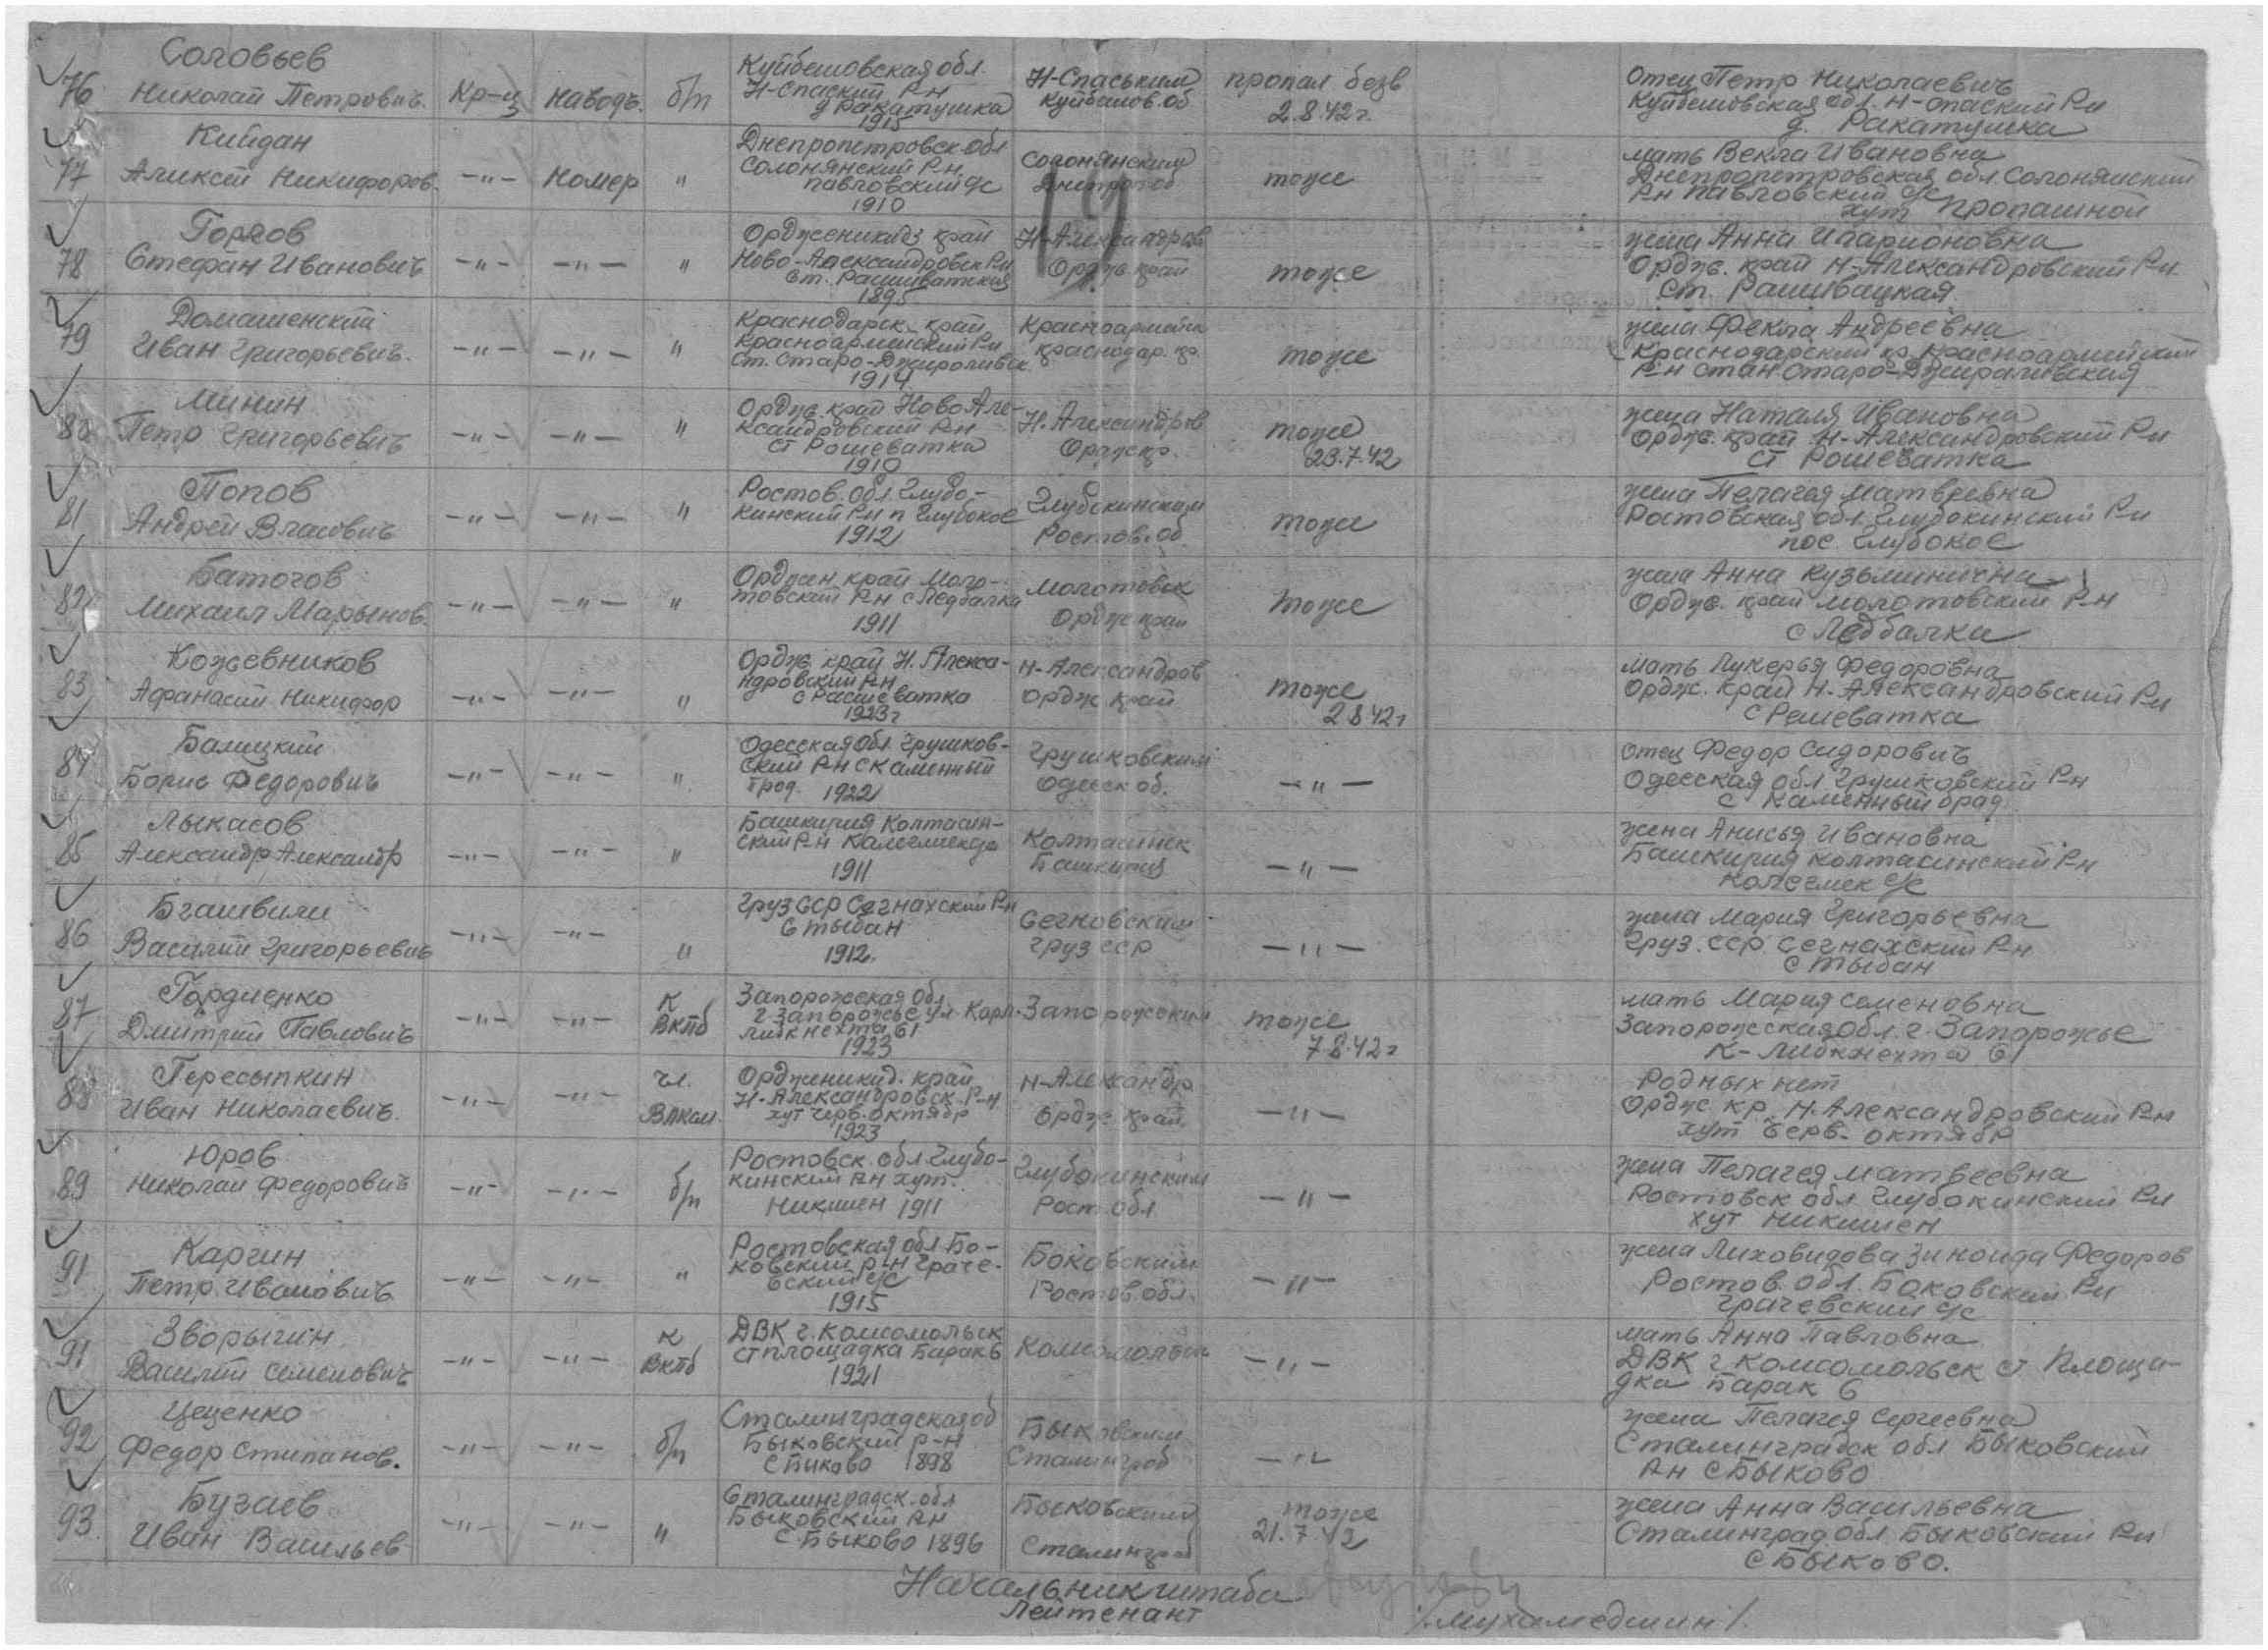 Соловьев
76 Николай Петрович. Кр-ц наводч. б/п
Куйбешовская обл.
Н-Спаский Р-н
д Ракатушка
1915
Н-Спаським
Куйбашов.об
пропал безв
2.8.42г.
отец Петр Николаевич
Куйбешовская обл. Н-спаский Р-н
д. Ракатушка
Кийдан
77 Аликсей Никифоров. -"- номер "
Днепропетровск. обл
Солонянский Р-н.
павловский с/с
1910
Солонянским
Днепроп об
тоже
мать Векла Ивановна
Днепропетровская обл. Солонянский
Р-н павловский с/с
хут Пропашной
19
Горлов
78 Стефан Иванович -"- -"- "
Ордженикидз край
Ново-Александровск Р-н
ст. Рашиватская
1895
Н-Александров
Ордж край
тоже
жена Анна Иларионовна
Ордж. край Н-Александровский Р-н.
ст. Рашивацкая
Домашенский
79 Иван Григорьевич. -"- -"- "
Краснодарск. край
Красноармейский Р-н
Ст. Старо-Джироливск
1914
Красноармейск
краснодар. кр.
тоже
жена Фекла Андреевна
Краснодарский кр. Красноармийский
Р-н стан Старо-Джираливския
Минин
80 Петр Григорьевич -"- -"- "
Ордж. край Ново Але-
ксандровский Р-н
ст Рошеватка
1910
Н. Александров
Ордж кр.
тоже
23.7.42
жена Наталя Ивановна
Ордж. край Н-Александровский Р-н
ст Рошеватка
Попов
81 Андрей Власович -"- -"- "
Ростов. обл. Глубо-
кинский Р-н п Глубокое
1912
Глубокинским
Ростов. об
тоже
жена Пелагея Матвеевна
Ростовская обл. Глубокинский Р-н
пос. Глубокое
Батогов
82 Михаил Марынов. -"- -"- "
Орджан. край Моло-
товский Р-н с Ледбалка
1911
Молотовск
Ордж край
тоже
жена Анна Кузьминична
Ордж. край молотовский Р-н
с Ледбалки
Кожевников
83 Афанасий Никифор -"- -"- "
Ордж край Н. Алекса-
ндровский Р-н
с Расшеватка
1923г
Н-Александров
Ордж край
тоже
2 8 42г
мать Лукерья Федоровна
Ордж. край Н-Александровский Р-н
с Решеватка
Балицкий
84 Борис Федорович -"- -"- "
Одесская обл Грушков-
ский Р-н с Каменный
град. 1922
Грушковским
Одесск об.
-"-
отец Федор Сидорович
Одесская обл Грушковский Р-н
с Каменный брад
Лыкасов
85 Александр Александр -"- -"- "
Башкирия Колтасин-
ский Р-н
1911
Колтасинск
Башкирия
-"-
жена Анисья Ивановна
Башкирия колтасинский Р-н
Калегмек с/с
Бгашвили
86 Василий Григорьевич -"- -"- "
Груз ССР Сегнахский Р-н
с тыбан
1912.
Сегновским
Груз ССР
-"-
жена Мария Григорьевна
Груз. ССР. Сегнахский Р-н
с Тыбан
Гордиенко
87 Дмитрий Павлович -"- -"- К ВКПб
Запорожская обл
г Запорожье ул. Карл.
Либкнехта 61
1923
Запорожским
тоже
7.8.42г
мать Мария Семеновна
Запорожская обл. г. Запорожье
К-Либкнехта 61
Пересыпкин
88 Иван Николаевич. -"- -"- чл. Влксм.
Ордженикид. край
Н-Александровск. Р-н
хут черв. Октябр
1923
Н-Александр.
Ордж край
-"-
Родных нет
Ордж кр. Н. Александровский Р-н
хут Черв. октябр
Юров
89 Николай Федорович -"- -"- б/п
Ростовск. обл Глубо-
кинский Р-н хут.
Никишен 1911
Глубокинским
Рост. обл
-"-
жена Пелагея Матвеевна
Ростовск обл Глубокинский Р-н
хут Никишен
Каргин
91 Петр Иванович -"- -"- "
Ростовская обл Бо-
ковский р-н Граче-
вский с/с
1915
Боковским
Ростов. обл.
-"-
жена Лиховидова Зиноида Федоров
Ростов. обл. Боковский Р-н
Грачевский с/с
Зворыгин
91 Василий Семенович -"- -"- К ВКПб
ДВК г. Комсомольск
ст площадка Барак 6
1921
Комсомольск
-"-
мать Анна Павловна
ДВК г Комсомольск ст Площа-
дка Барак 6
Цеценко
92 Федор Стипанов. -"- -"- б/п
Сталинградская об
Быковский р-н
с Быково 1898
Быковским
Сталинград
-"-
жена Пелагея Сергеевна
Сталинградск обл Быковский
Р-н с Быково
Бугаев
93. Иван Васильев -"- -"- "
Сталинградск. обл
Быковский Р-н
с Быково 1896
Быковским
Сталинград
тоже
21.7.42
жена Анна Васильевна
Сталинград. обл. Быковский Р-н
с Быково.
Начальник штаба
Лейтенант /Мухамедшин/